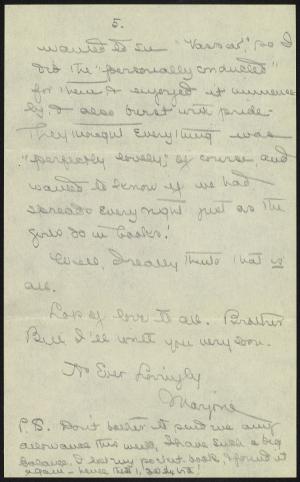 5.
wanted to see "Vassar", so I
did the "personally conducted"
for them & enjoyed it immense-
ly & also burst with pride.
They thought everything was
"perfectly lovely," of course and
wanted to know if we had
spreads every night just as the
girls do in books!
Well, I really think that is
all.
Lots of love to all. Brother
Bill I'll write you very soon.
As Ever Lovingly
Marjorie
P.S. Don't bother to send me any
allowance this week, I have such a big
balance. I lost my pocket book & found it
again - hence the